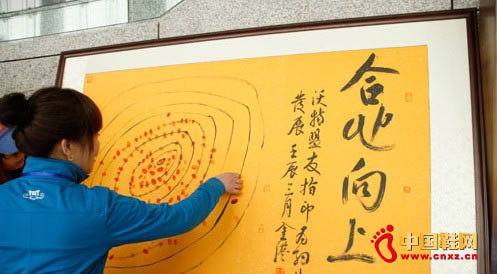 合心向上
沃特盟友指印为
发展 壬辰三月
中国鞋网
www.cnxz.cn